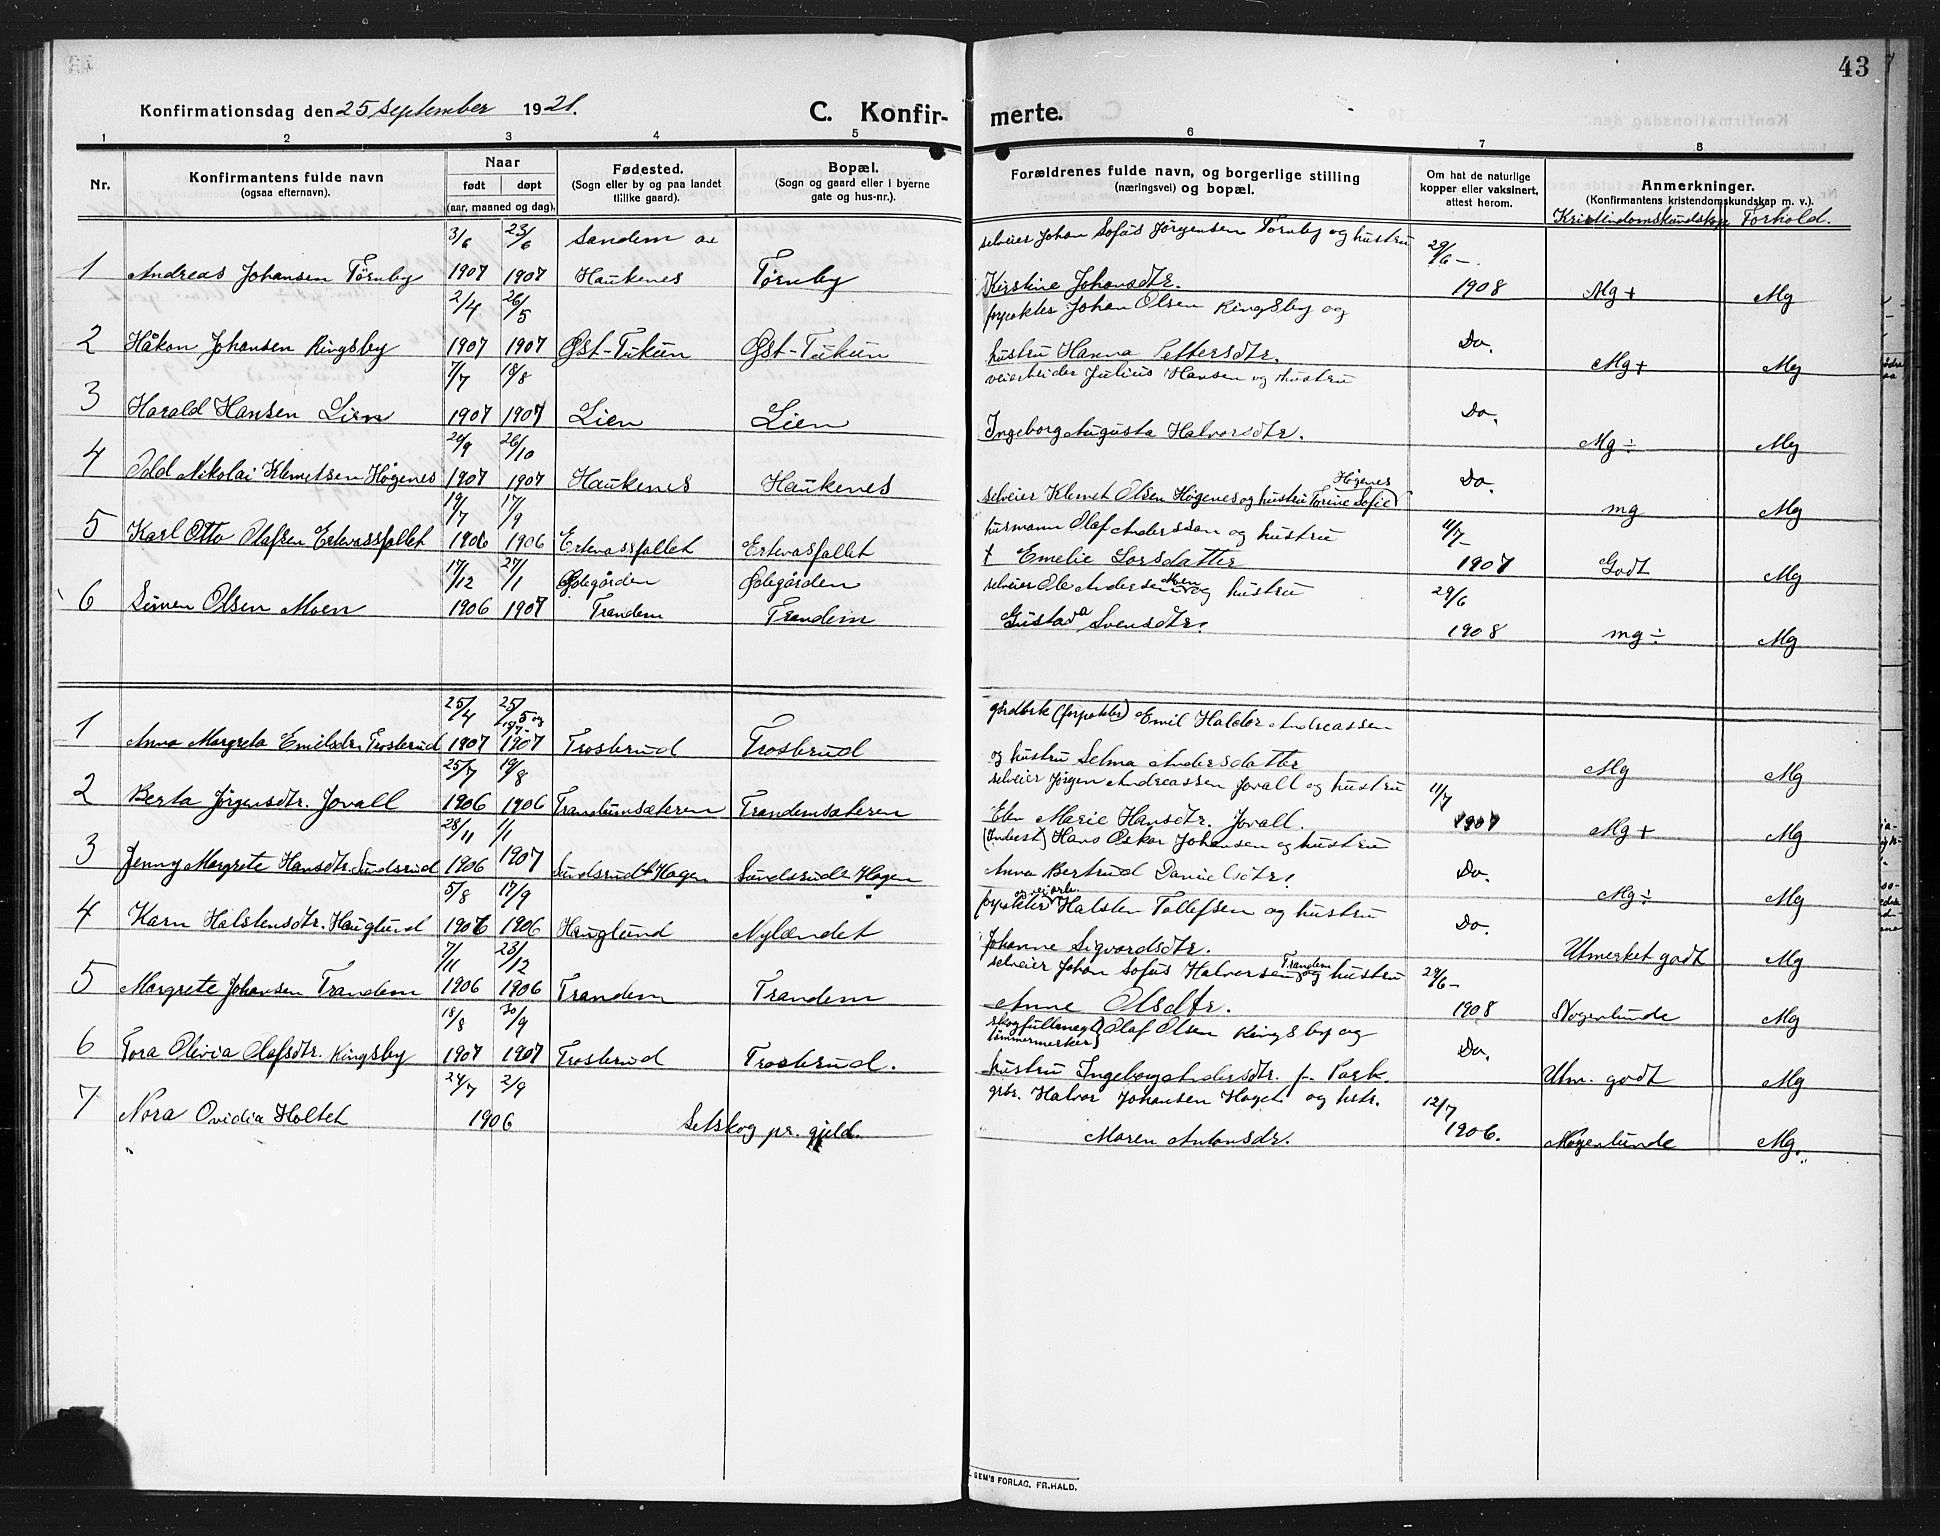 43
Konfirmationsdag den 25 September 1921.
C. Konfir-
merte.
1 2 3 4 5 6 7 8
Nr.
Konfirmantens fulde navn
(ogsaa efternavn).
Naar
født døpt
(aar, maaned og dag).
Fødested.
(Sogn eller by og paa landet
tillike gaard).
Bopæl.
(Sogn og gaard eller i byerne
gate og hus-nr.).
Forældrenes fulde navn, og borgerlige stilling
(næringsvei) og bopæl.
Om hat de naturlige
kopper eller vaksinert,
attest herom.
Anmerkninger.
(Konfirmantens kristendomskundskap m. v.).
Kristendomskundskap Forhold.
3/6 23/6 Sandem ae selveier Johan Sofus Jørgensen Tørnby og hustru 29/6 -
1 Andreas Johansen Tørnby 1907 1907 Haukenes Tørnby Kirstine Johansdtr. 1908 Mg + Mg
2/4 26/5 forpakter Johan Olsen Ringsby og
2 Håkon Johansen Ringsby 1907 1907 Øst-Tukun Øst-Tukun hustru Hanna Pettersdtr. Do. Mg + Mg
7/7 18/8 veiarbeider Julius Hansen og hustru
3 Harald Hansen Lien 1907 1907 Lien Lien Ingeborg Augusta Halvorsdtr. Do. Mg ÷ Mg
24/9 26/10 Høgenes
4 Odd Nikolai Klemetsen Høgenes 1907 1907 Haukenes Haukenes selveier Klemet Olsen Høgenes og hustru Torine Sofie Do. mg Mg
19/7 17/9 husmann Olaf Anderssen og hustru 11/7 -
5 Karl Otto Olafsen Ertevassfallet 1906 1906 Ertevassfallet Ertevasfallet Emelie Larsdatter 1907 Godt Mg
17/12 27/1 Ødegården Ødegården selveier Ole Andersen Moen og hustru 29/6
6 Simen Olsen Moen 1906 1907 Trandem Trandem Gustava Svensdtr. 1908 mg ÷ Mg
25/4 25/5 og gårdbrk (forpakter) Emil Haldor Andreassen
1 Anna Margreta Emilsdtr Trosterud 1907 1907 Trosterud Trosterud og hustru Selma Andersdatter Mg Mg
25/7 19/8 selveier Jørgen Andreassen Jovall og hustru 11/7
2 Berta Jørgensdtr. Jovall 1906 1906 Trandumsæteren Trandemsæteren Elen Marie Hansdtr. Jovall. 1907 Mg + Mg
28/11 1/1 (Inderst) Hans Oskar Johansen og hustru
3 Jenny Margrete Hansdtr. Sundsrud 1906 1907 Sundsrud Hagen Sundsrud Hagen Anna Bertrud Danielsdtr. Do. Mg ÷ Mg
5/8 17/9 forpakter og veiarb. Halsten Tollefsen og hustru
4 Karn Halstensdtr. Hauglund 1906 1906 Hauglund Nylændet Johanne Sigvardsdtr. Do. Utmerket godt Mg
7/11 23/12 selveier Johan Sofus Halvorsen Trandem og hustru 29/6 -
5 Margrete Johansen Trandem 1906 1906 Trandem Trandem Anne Olsdtr. 1908 Nogenlunde Mg
18/8 30/9 skogfullmægt. tømmermerker) Olaf Olsen Ringsby og
6 Tora Olivia Olafsdtr. Ringsby 1907 1907 Trosterud Trosterud. hustru Ingeborg Andersdtr. f. Park. Do. Utm. godt Mg
24/7 2/9 gbr. Halvor Johansen Haget og hstr. 12/7
7 Nora Ovidia Holtet 1906 Setskog pr. gjeld. Maren Antonsdr. 1906. Nogenlunde Mg.
SEM'S FORLAG, FR.HALD.